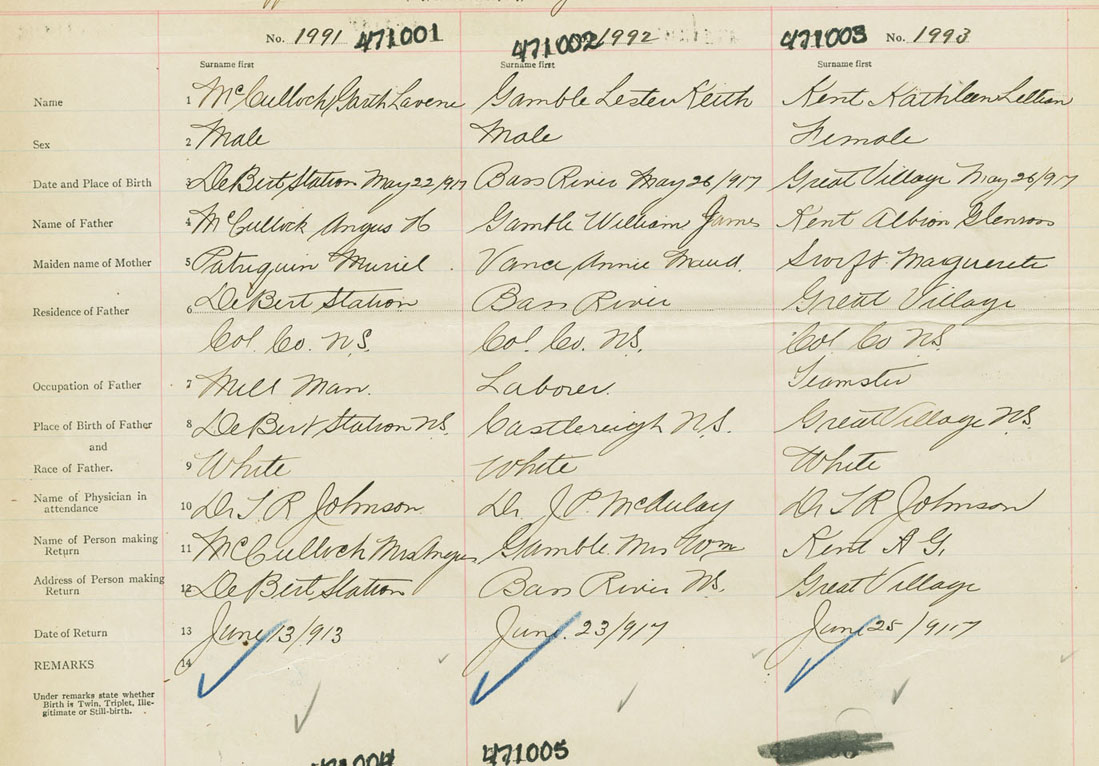 No. 1991 471001 471002 1992 471003 No. 1993
Surname first Surname first Surname first
Name 1 McCulloch Garth Laverne Gamble Lester Keith Kent Kathleen Lillian
Sex 2 Male Male Female
Date and Place of Birth 3 DeBert Station May 22/917 Bass River May 26/917 Great Village May 26/917
Name of Father 4 McCullock Angus H Gamble William James Kent Albion Glenross
Maiden name of Mother 5 Patriquin Muriel Vance Annie Maud. Swift Marguerite
Residence of Father 6 DeBert Station Bass River Great Village
Col. Co. N.S. Col. Co. N.S. Col. Co N.S.
Occupation of Father 7 Mill Man. Laborer. Teamster
Place of Birth of Father 8 DeBert Station N.S. Castlereigh N.S. Great Village N.S.
and
Race of Father. 9 White White White
Name of Physician in
attendance 10 Dr T R Johnson Dr J P. McAulay Dr T R Johnson
Name of Person making
Return 11 McCulloch Mrs Angus Gamble Mrs Wm Kent A G.
Address of Person making
Return 12 DeBert Station Bass River N.S. Great Village
Date of Return 13 June 13/913 June. 23/917 June 25/917
REMARKS 14
Under remarks state whether
Birth is Twin, Triplet, Ille-
gitimate or Still-birth.
471004 471005